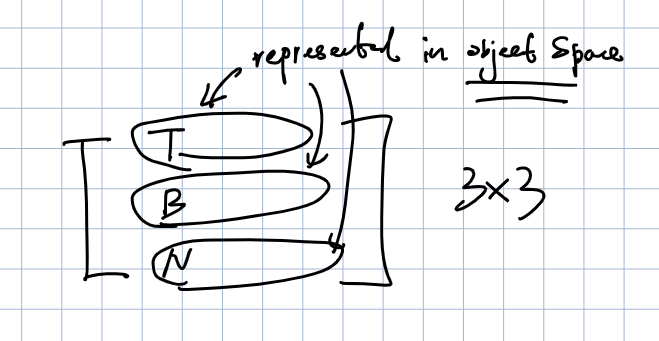 represented in object space
T
B
3×3
N